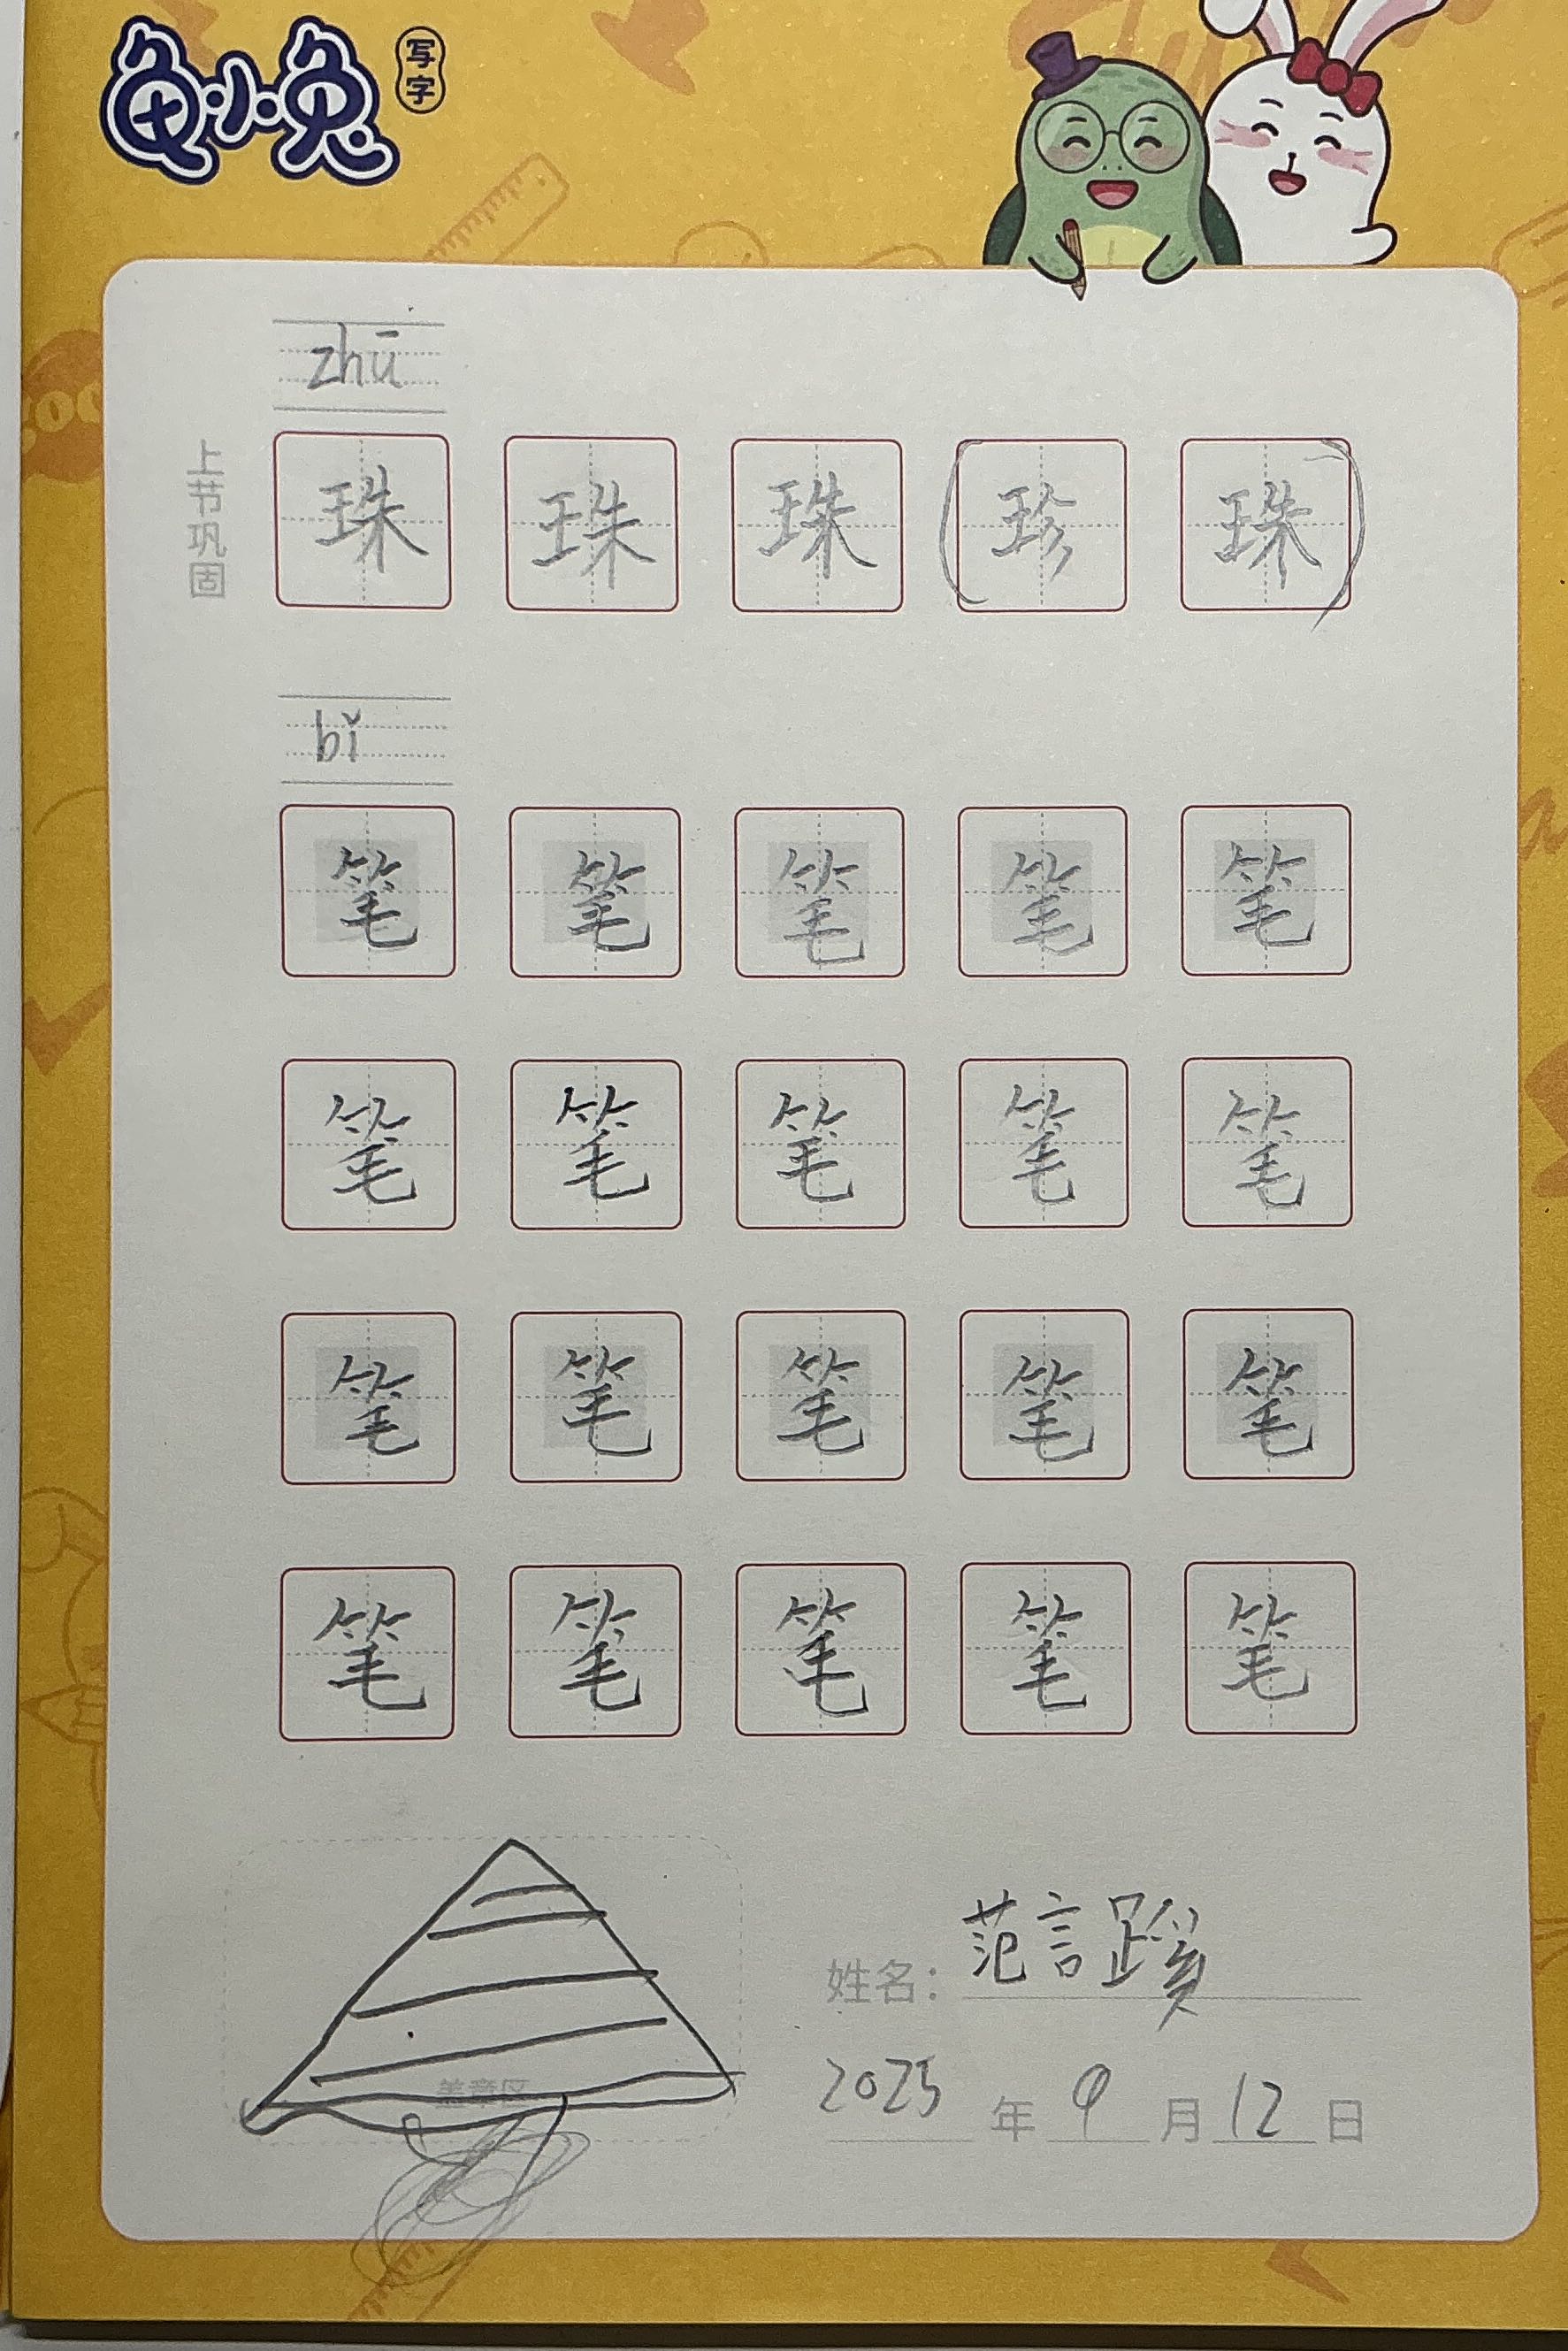 龟小兔
写字
zhū
上节巩固
珠 珠 珠 (珍 珠)
bǐ
笔 笔 笔 笔 笔
笔 笔 笔 笔 笔
笔 笔 笔 笔 笔
笔 笔 笔 笔 笔
盖章区
姓名: 范言蹊
2025 年 9 月 12 日